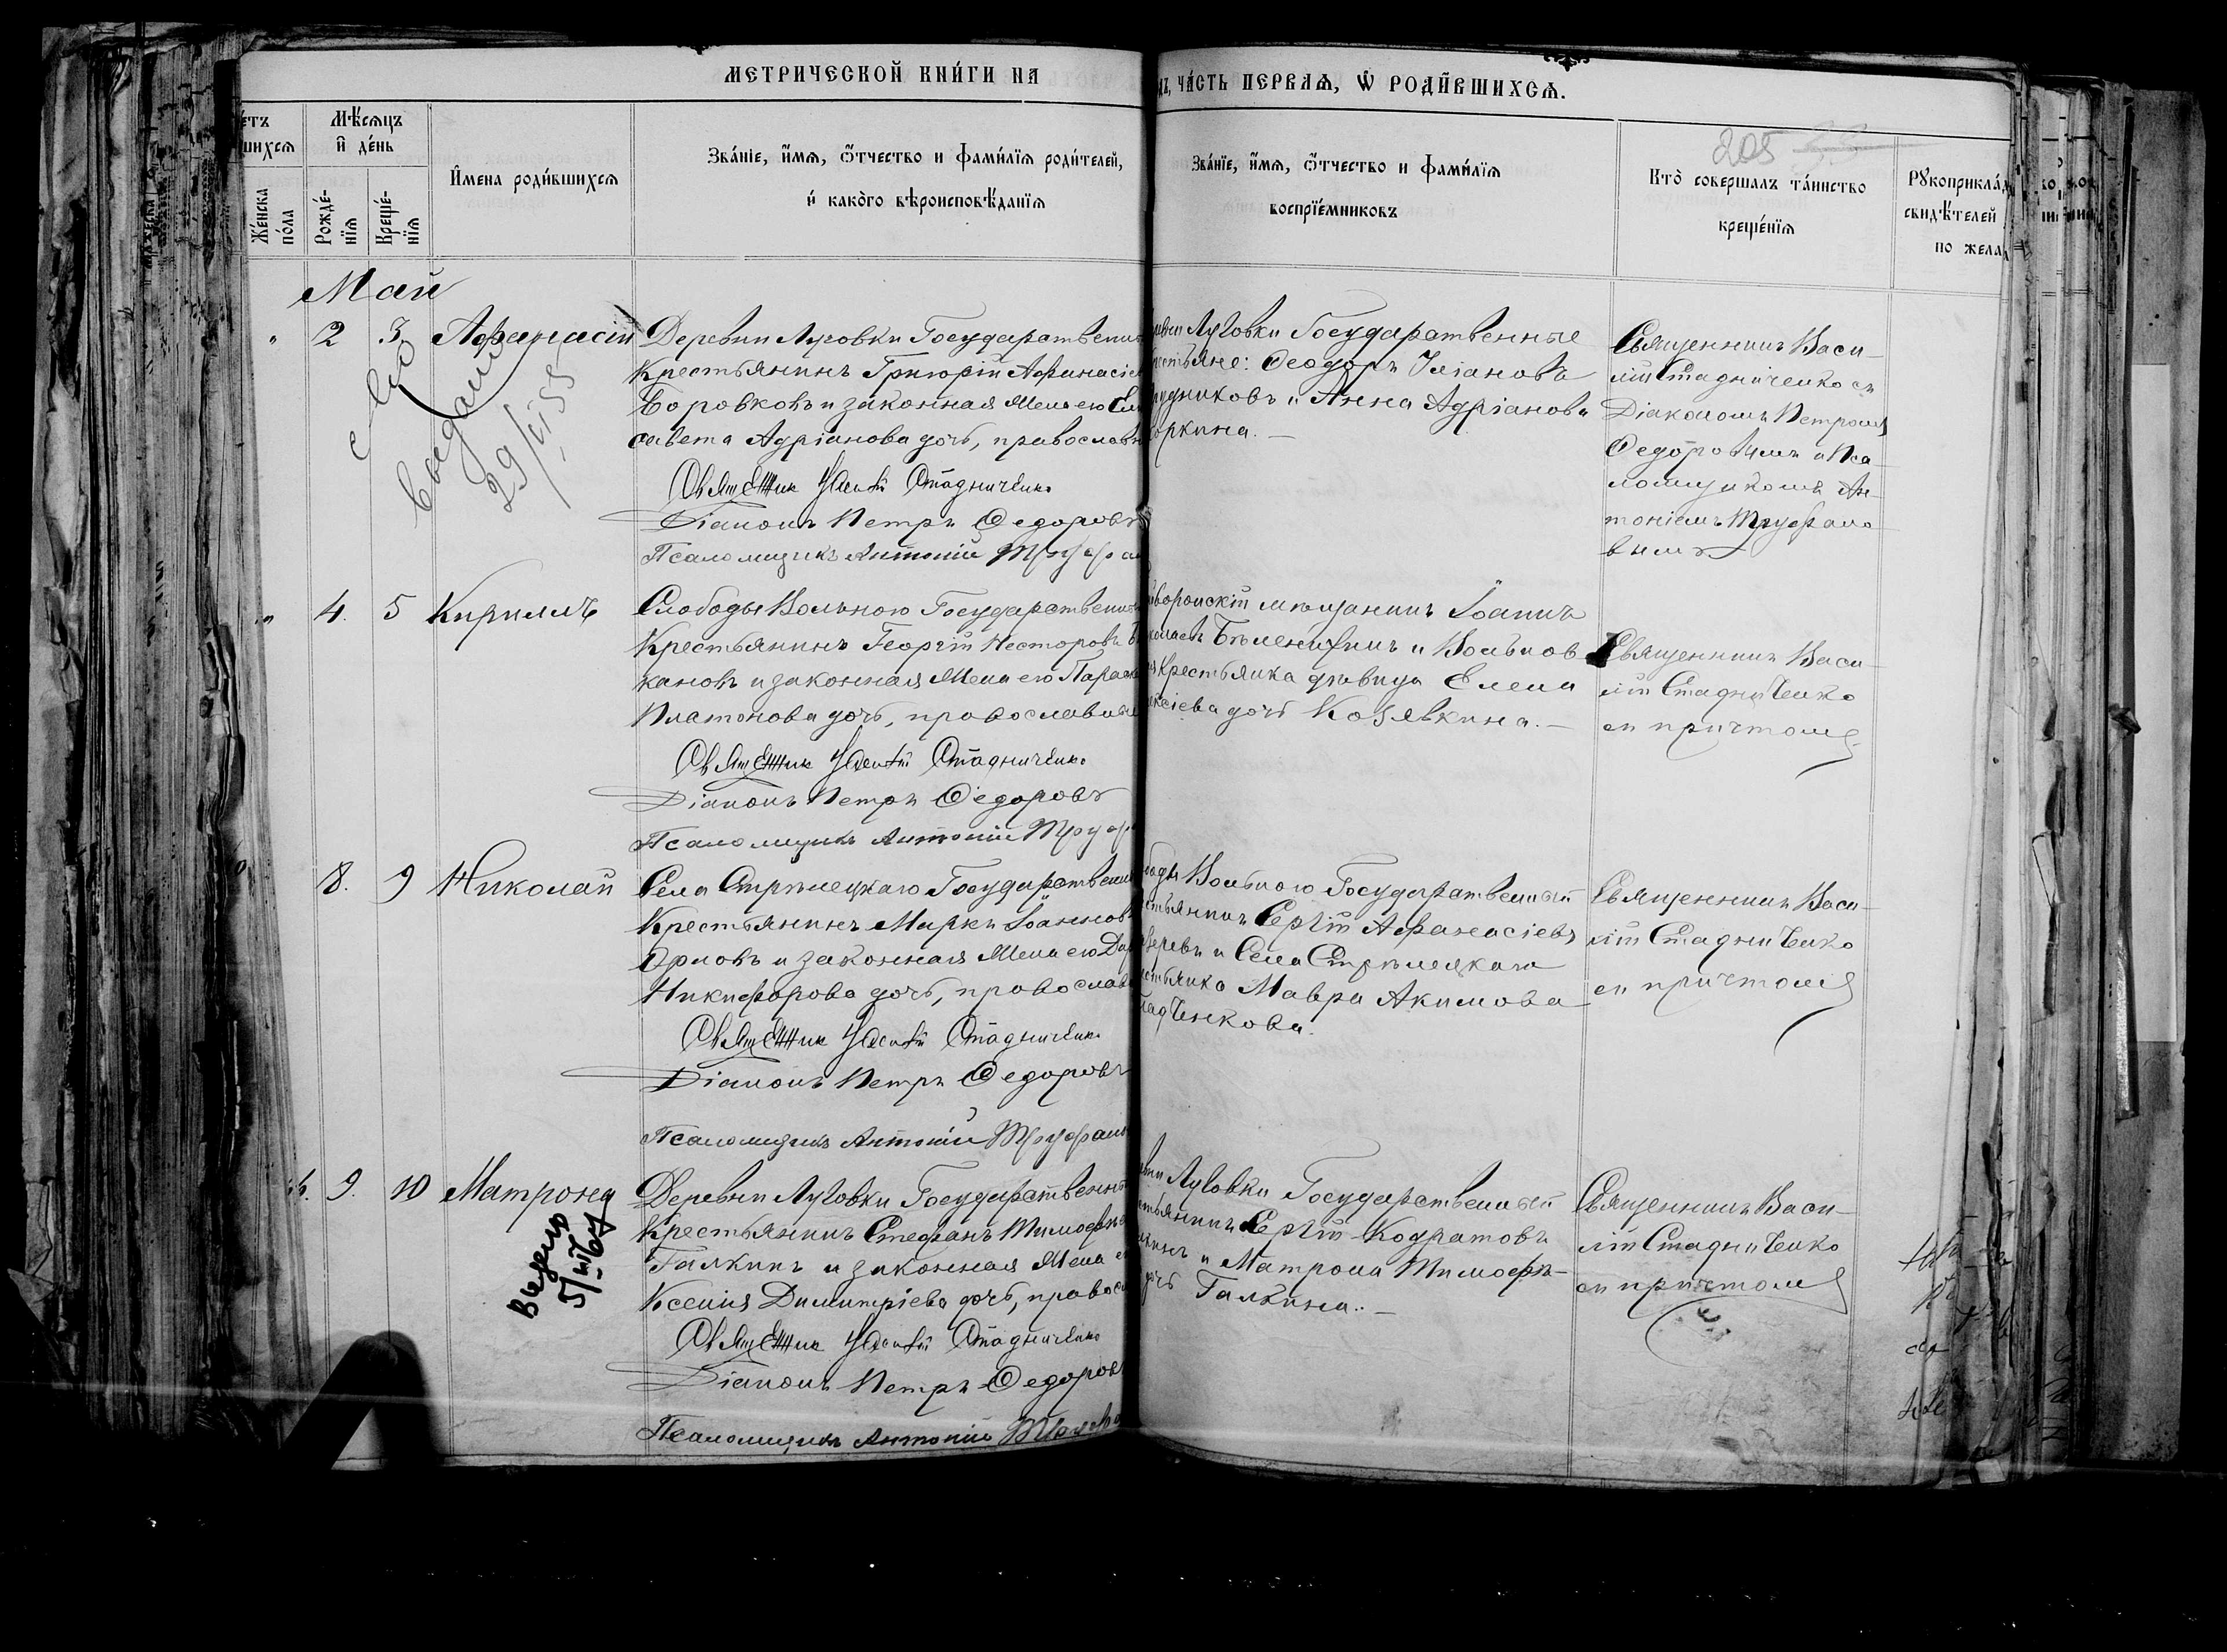 МЕТРИЧЕСКОЙ КНИ́ГИ НА
ЧА́СТЬ ПЕРВАѦ, Ѡ҆ РОДИ́ВШИХСѦ.
205
Мѣ́сѧцъ
и҆ де́нь
Же́нска
по́ла
Рожде́-
нїѧ
Креще́-
нїѧ
И҆мена роди́вшихсѧ
Зва́нїе, и҆́мѧ, ѻ҆́тчество и фами́лїѧ роди́телей,
и҆ како́гѡ вѣроисповѣ́данїѧ
Зва́нїе, и҆́мѧ, ѻ҆́тчество и фами́лїѧ
воспрїе́мниковъ
Кто̀ соверша́лъ та́инство
креще́нїѧ
Рꙋкоприкла́д
свидѣ́телей
по жела
Май
2 3 Афанасій
Деревни Луговки Государствен
Крестьянинъ Григорій Афанасіе
Боровковъ и законная жена его Ели
савета Адріанова дочь, православн
Священник Василій Стадниченко
Діаконъ Петръ Федоровъ
Псаломщикъ Антоній Труфан
Луговки Государственные
Феодоръ
и Анна Адріанова
Священникъ Васи-
лій Стадниченко съ
Діакономъ Петромъ
Федоровымъ и Пса-
ломщикомъ Ан-
тоніемъ Труфано
вымъ
29/VI 55
4. 5 Кириллъ
Слободы Вольного Государствен
Крестьянинъ Георгій Несторовъ
кановъ и законная жена его Параск
Платонова дочь, православные
Священник Василій Стадниченко
Діаконъ Петръ Федоровъ
Псаломщикъ Антоній Труф
мѣщанинъ Іоаннъ
и Вольнов
крестьянка дѣвица Елена
дочь Козявкина. —
Священникъ Васи-
лій Стадниченко
съ причтомъ
8. 9 Николай
Села Стрѣлецкаго Государствен
Крестьянинъ Маркъ Іоаннов
Орловъ и законная жена его Дар
Никифорова дочь, православ
Священник Василій Стадниченко
Діаконъ Петръ Федоровъ
Псаломщикъ Антоній Труфан
Вольного Государственный
Сергій Афанасіевъ
и Села Стрѣлецкаго
Мавра Акимова
Священникъ Васи-
лій Стадниченко
съ причтомъ
9. 10 Матрона
Деревни Луговки Государственны
Крестьянинъ Стефанъ Тимофѣев
Галкинъ и законная жена его
Ксенія Димитріева дочь, правосл
Священник Василій Стадниченко
Діаконъ Петръ Федоровъ
Псаломщикъ Антоній Труфа
Луговки Государственный
Сергій Кодратовъ
и Матрона Тимофѣ-
Галкина. —
Священникъ Васи-
лій Стадниченко
съ причтомъ